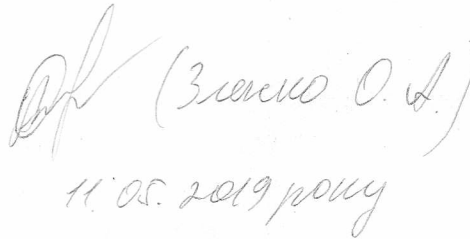 (Зленко О. А.)
11.05.2019 року